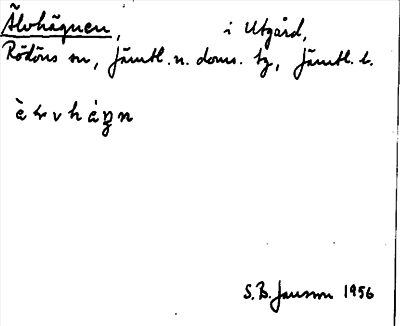 Älvhägnen, i Utgård,
Rödöns sn, Jämtl. n. doms. tg, Jämtl. l.
S. B. Jansson 1956